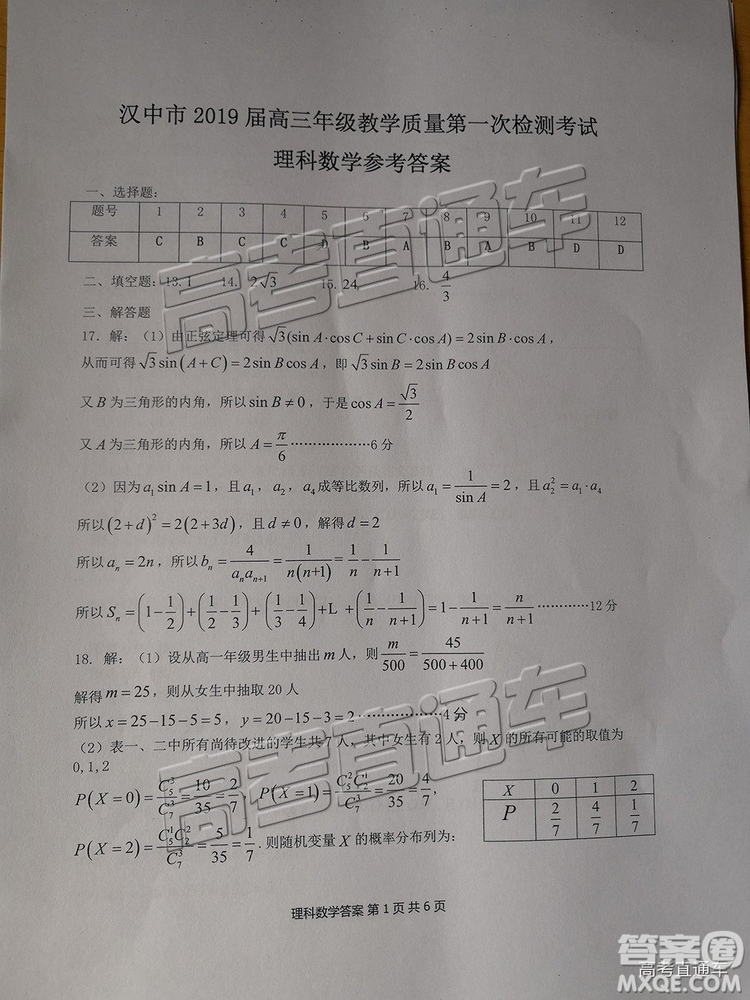 汉中市 2019 届高三年级教学质量第一次检测考试
理科数学参考答案
一、选择题:
题号 1 2 3 4 5 6 7 8 9 10 11 12
答案 C B C C D B A B A B D D
二、填空题: 13. 1 14. 2√3 15. 24 16. 4/3
三、解答题
17. 解:(1)由正弦定理可得 √3(sin A·cos C+sin C·cos A)=2sin B·cos A,
从而可得 √3 sin(A+C)=2sin B cos A,即 √3 sin B=2sin B cos A
又 B 为三角形的内角,所以 sin B≠0,于是 cos A=√3/2
又 A 为三角形内角,所以 A=π/6 ……………6 分
(2)因为 a₁ sin A=1,且 a₁,a₂,a₄ 成等比数列,所以 a₁=1/sin A=2,且 a₂²=a₁·a₄
所以 (2+d)²=2(2+3d),且 d≠0,解得 d=2
所以 aₙ=2n,所以 bₙ=4/(aₙaₙ₊₁)=1/(n(n+1))=1/n-1/(n+1)
所以 Sₙ=(1-1/2)+(1/2-1/3)+(1/3-1/4)+L +(1/n-1/(n+1))=1-1/(n+1)=n/(n+1) …………12 分
18. 解:(1)设从高一年级男生中抽出 m 人,则 m/500=45/(500+400)
解得 m=25,则从女生中抽取 20 人
所以 x=25-15-5=5,y=20-15-3=2 ………………4 分
(2)表一、二中所有尚待改进的学生共 7 人,其中女生有 2 人,则 X 的所有可能的取值为
0,1,2
P(X=0)=C₅³/C₇³=10/35=2/7,P(X=1)=C₅²C₂¹/C₇³=20/35=4/7,
P(X=2)=C₅¹C₂²/C₇³=5/35=1/7. 则随机变量 X 的概率分布列为:
X 0 1 2
P 2/7 4/7 1/7
理科数学答案 第 1 页 共 6 页
高考直通车
高考直通车
答案卷
高考直通车
MXQE.COM